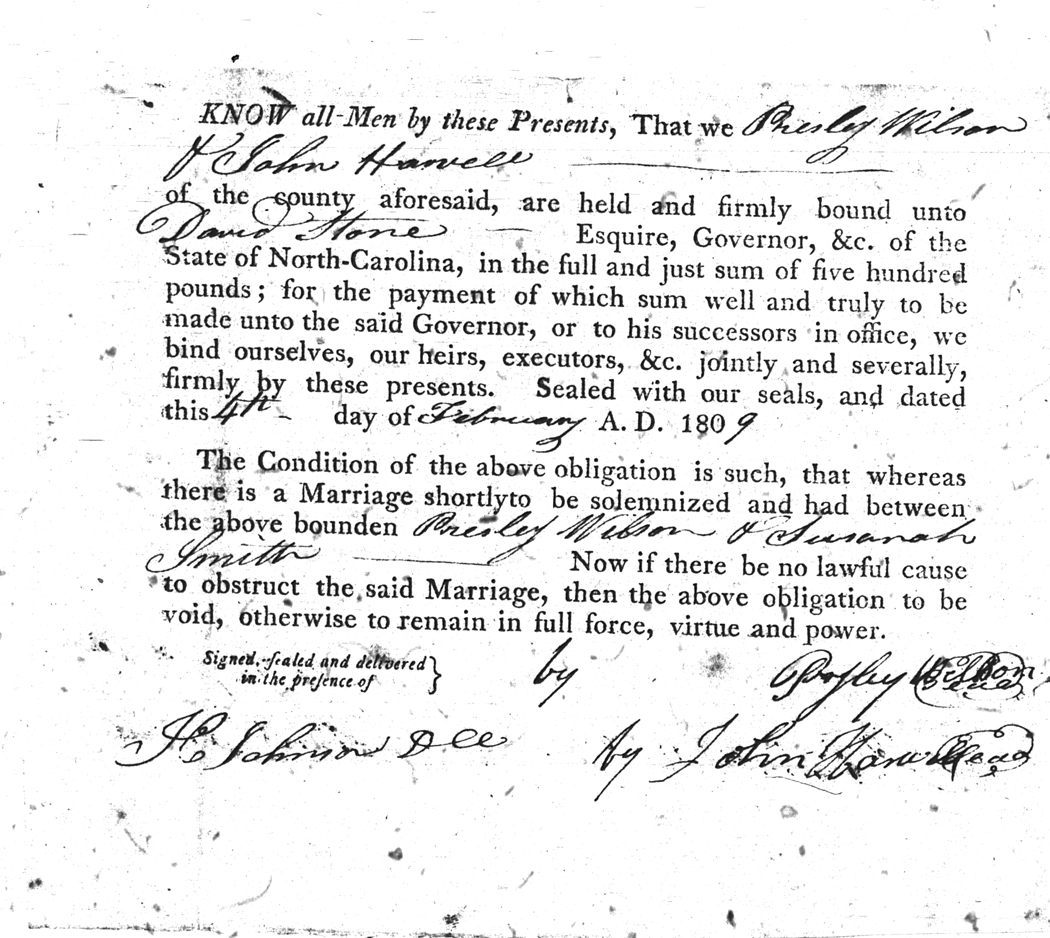 KNOW all-Men by these Presents, That we Presley Wilson
& John Harvell
of the county aforesaid, are held and firmly bound unto
David Stone Esquire, Governor, &c. of the
State of North-Carolina, in the full and just sum of five hundred
pounds; for the payment of which sum well and truly to be
made unto the said Governor, or to his successors in office, we
bind ourselves, our heirs, executors, &c. jointly and severally,
firmly by these presents. Sealed with our seals, and dated
this 4th day of February A. D. 1809
The Condition of the above obligation is such, that whereas
there is a Marriage shortlyto be solemnized and had between
the above bounden Presley Wilson & Susanah
Smith Now if there be no lawful cause
to obstruct the said Marriage, then the above obligation to be
void, otherwise to remain in full force, virtue and power.
Signed, sealed and delivered
in the presence of
by Presley Wilson Seal
Johnson by John Seal